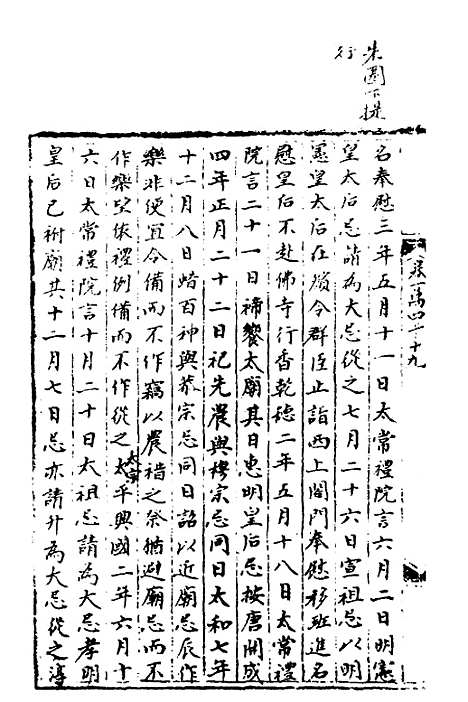 朱圈下提
行
卷一萬四千十九
名奉慰三年五月十一日太常禮院言六月二日明憲
皇太后忌請為大忌從之七月二十六日宣祖忌以明
憲皇太后在殯令群臣止詣西上閤門奉慰移班進名
慰皇后不赴佛寺行香乾德二年五月十八日太常禮
院言二十一日禘饗太廟其日惠明皇后忌按唐開成
四年正月二十二日祀先農與穆宗忌同日太和七年
十二月八日蜡百神與敬宗忌同日詔以近廟忌辰作
樂非便宜令備而不作竊以農禧之祭猶避廟忌而不
作樂望依禮例備而不作從之太宗太平興國二年六月十
六日太常禮院言十月二十日太祖忌請為大忌孝明
皇后已祔廟其十二月七日忌亦請升為大忌從之淳